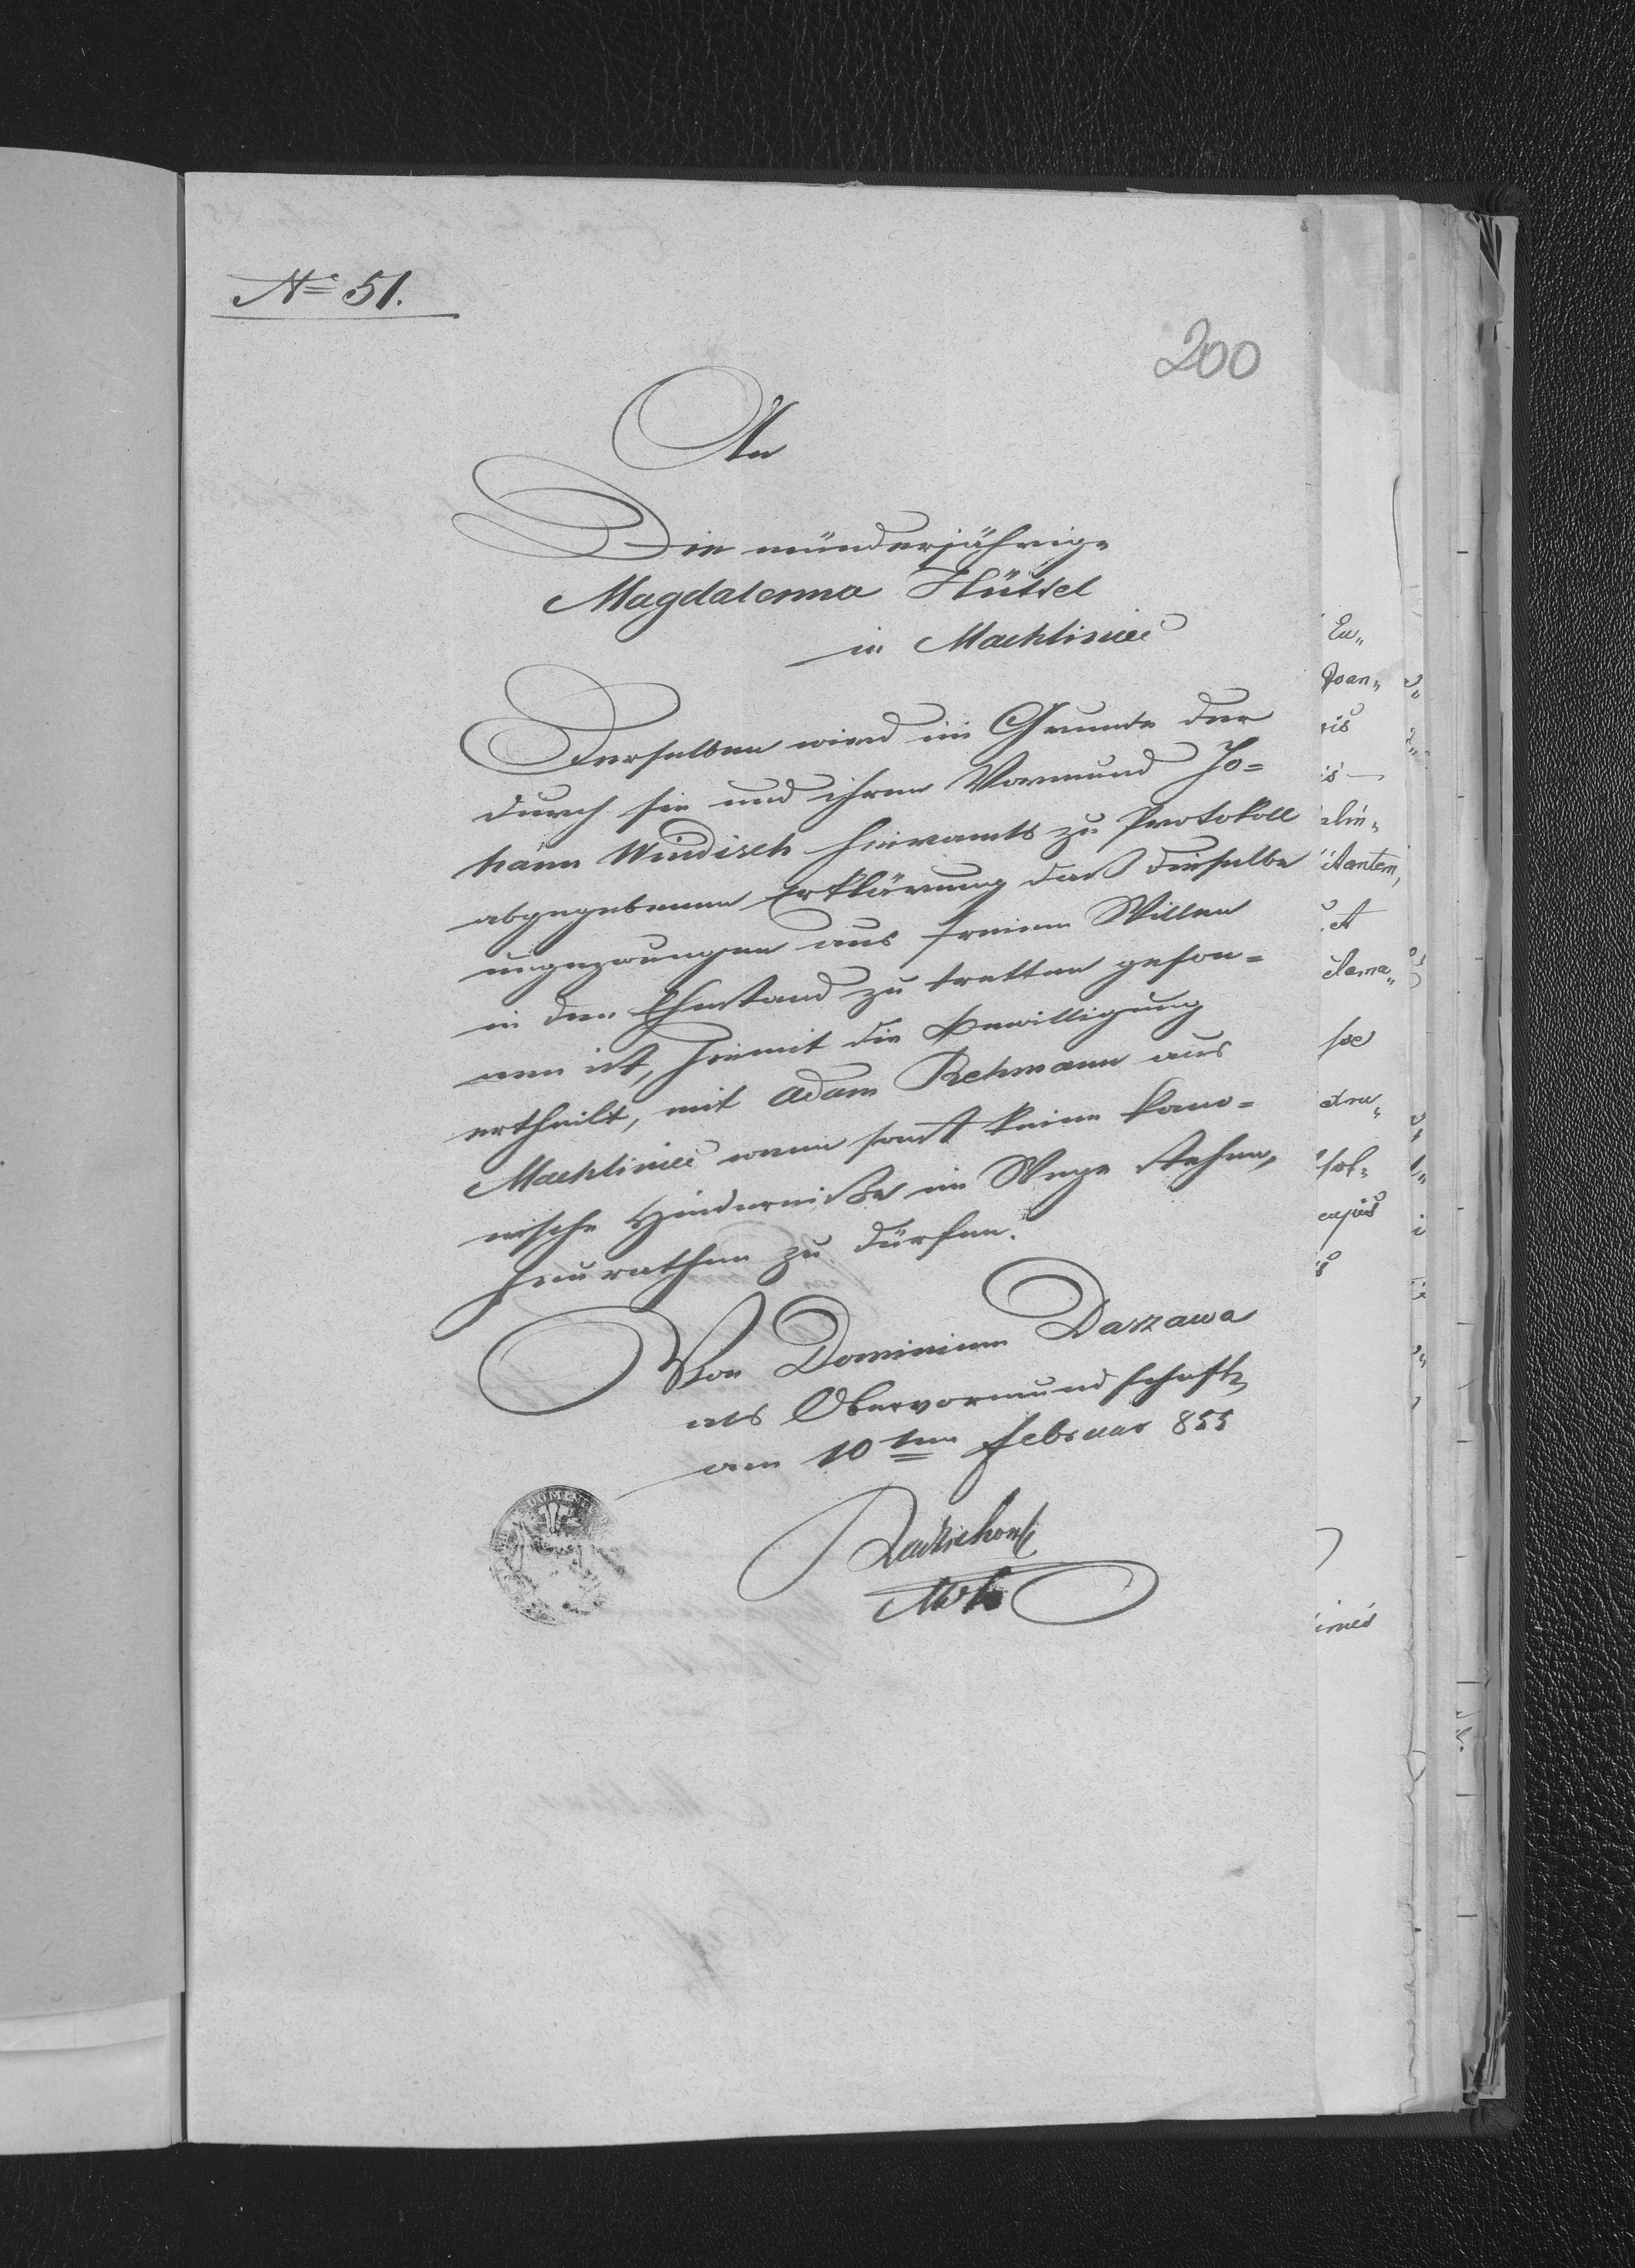 No 51.
200
An
Die münderjährige
Magdalenna Hüttel
in Machliniec
Derselben wird im Grunde der
durch sie und ihren Vormund Jo=
hann Windisch hieramts zu Protokoll
abgegebenen Erklärung daß dieselbe
ungezwungen aus freiem Willen
in den Ehestand zu tretten geson=
nen ist, hiemit die Bewilligung
ertheilt, mit Adam Rehmann aus
Machliniec wenn sonst keine kano=
nische Hinderniße im Wege stehen,
heurathen zu dürfen.
Von Dominium Daszawa
als Obervormundschaft
am 10ten Februar 855
Eu„
Joan„
ris
is
elin„
itantem,
et
clama„
sol=
cujus